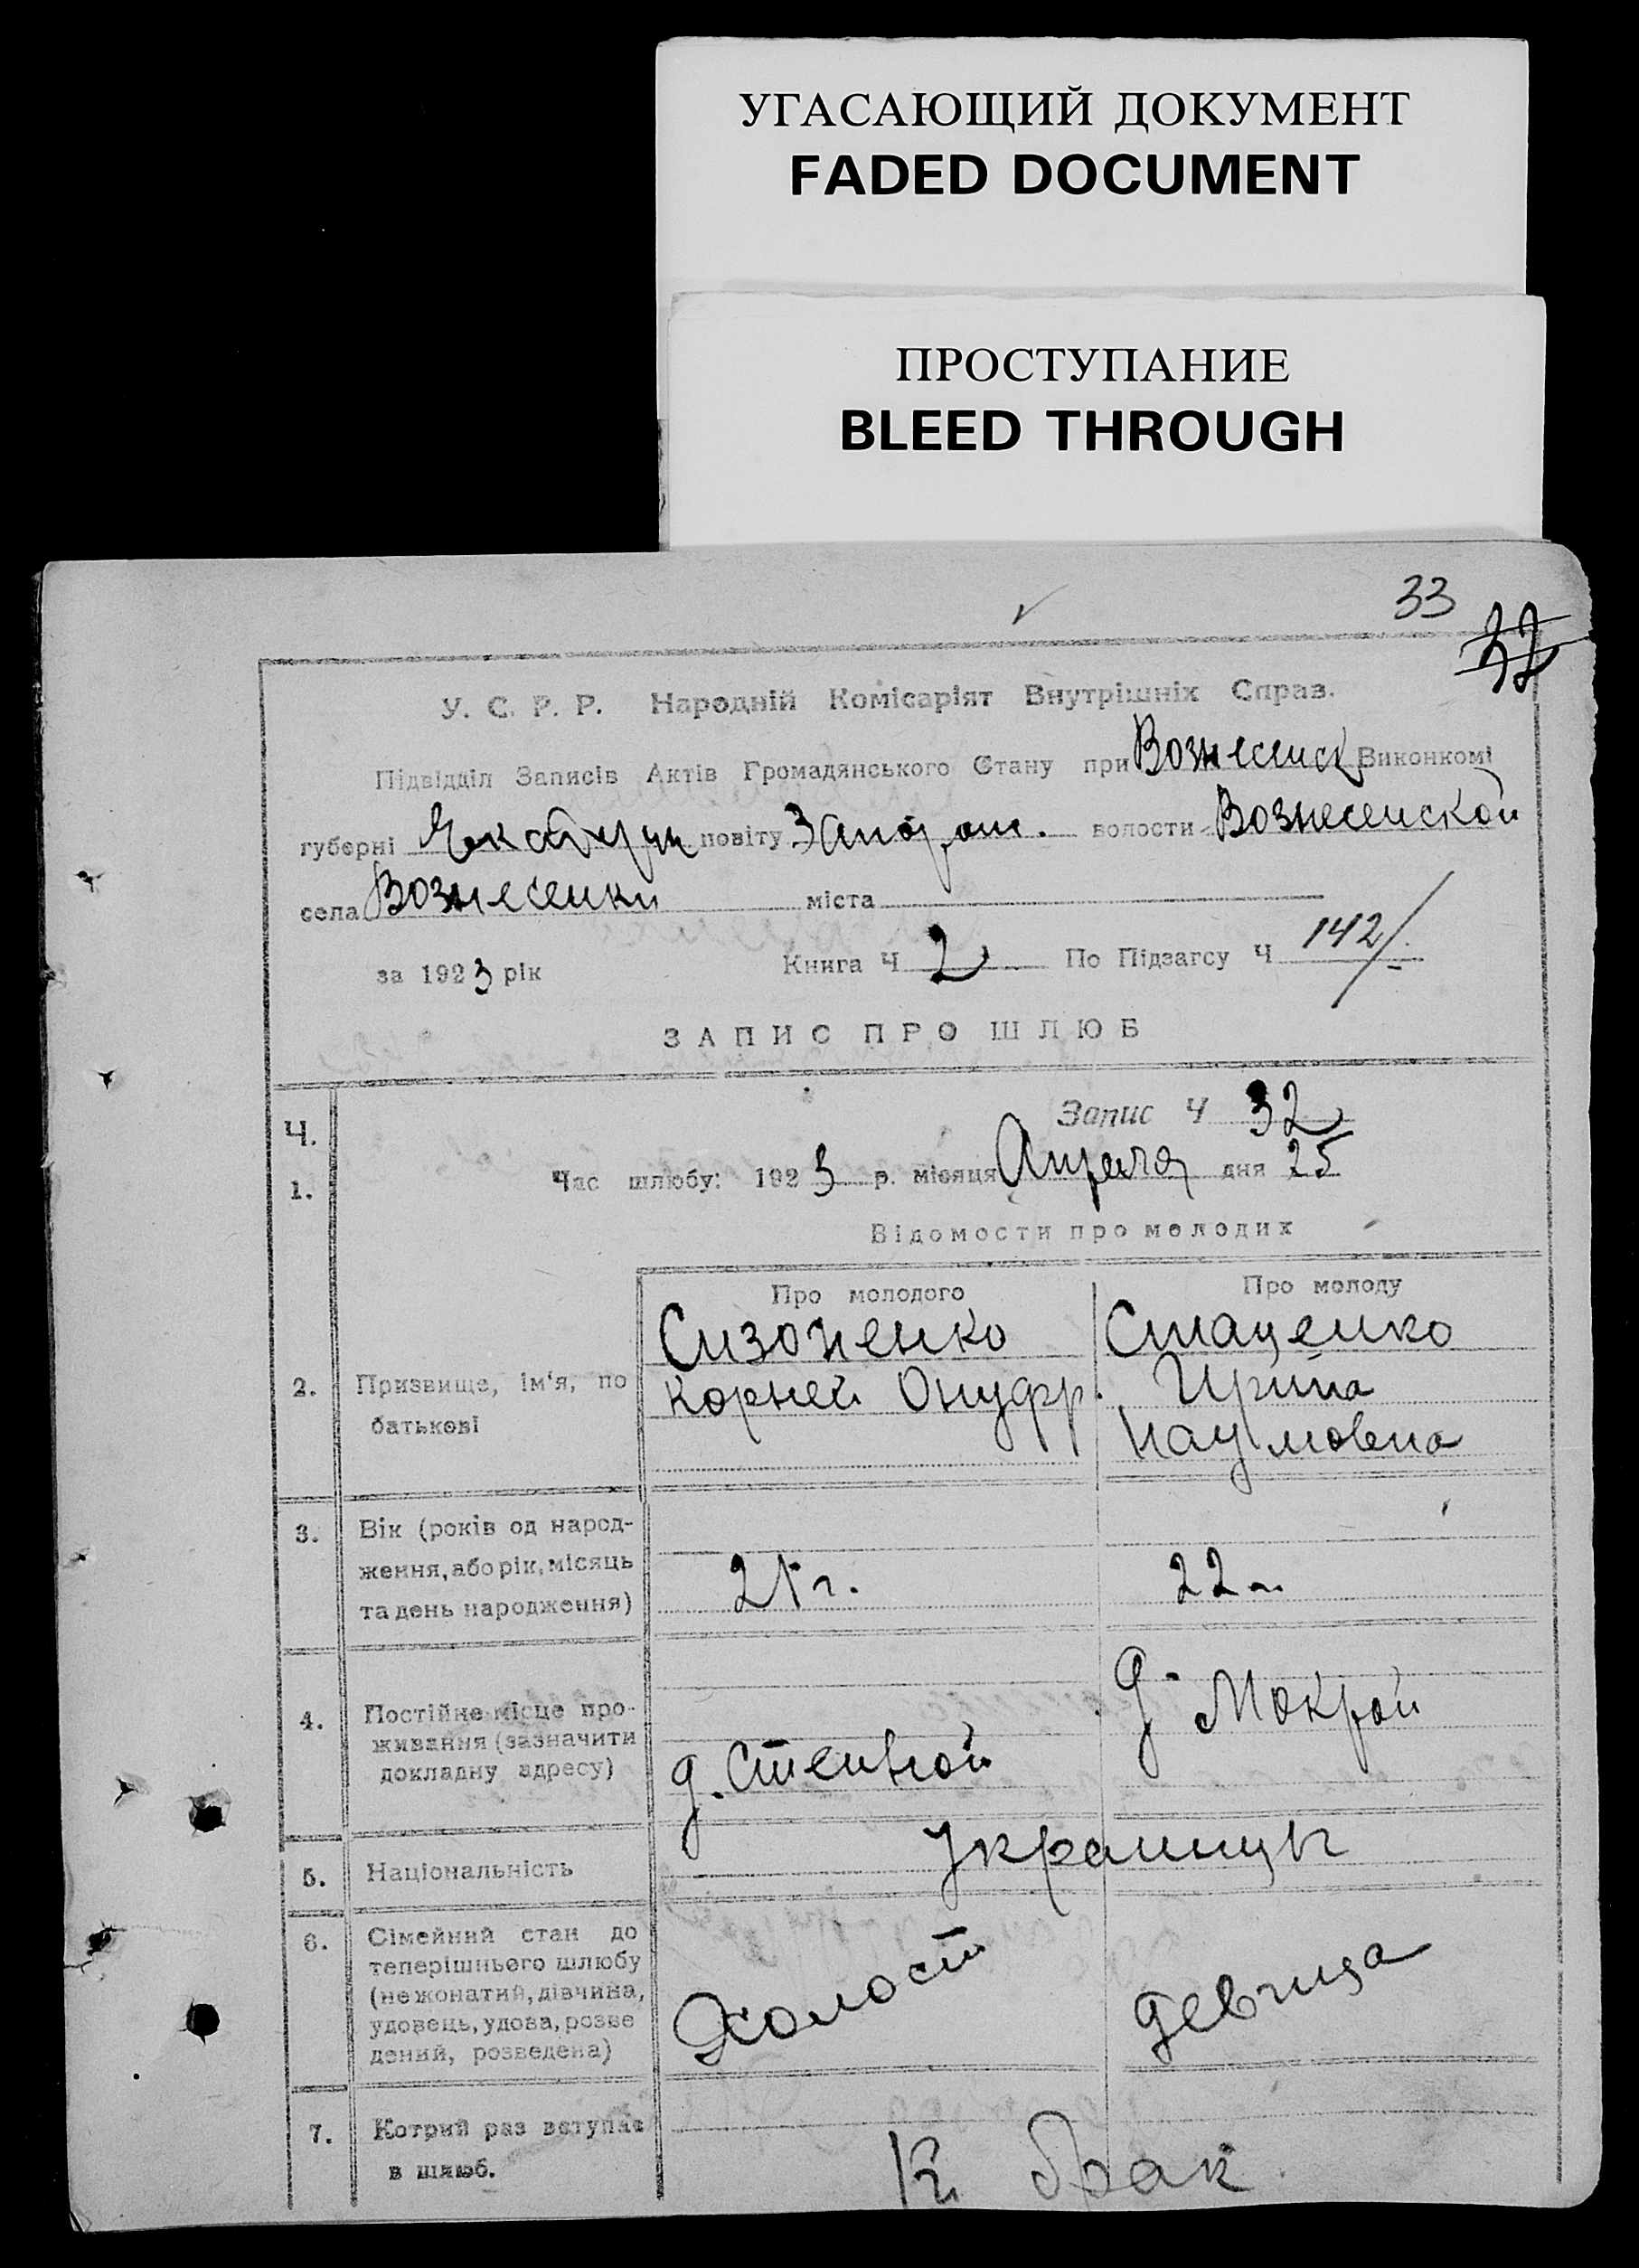 УГАСАЮЩИЙ ДОКУМЕНТ
FADED DOCUMENT
ПРОСТУПАНИЕ
BLEED THROUGH
33
32
У. С. Р. Р. Народній Комісаріят Внутрішніх Справ.
Підвідділ Записів Актів Громадянського Стану при Вознесенск Виконкомі
губерні Екатерин повіту Запорож. волости Вознесенской
села Вознесенки міста
за 1923 рік Книга Ч 2 По Підзагсу Ч 142/
ЗАПИС ПРО ШЛЮБ
Запис Ч 32
Ч.
1. Час шлюбу: 1923 р. місяця Апреля дня 25
Відомости про молодих
Про молодого Про молоду
Сизоненко Стаценко
2. Призвище, ім'я, по Корней Онуфр. Ирина
батькові Наумовна
3. Вік (років од народ-
ження, або рік, місяць 21 г. 22 г.
та день народження)
4. Постійне місце про- д. Мокрой
живання (зазначити
докладну адресу) д. Степной
5. Національність Украинцы
6. Сімейний стан до
теперішнього шлюбу
(не жонатий, дівчина, Холост девица
удовець, удова, розве
дений, розведена)
7. Котрий раз вступає
в шлюб. брак